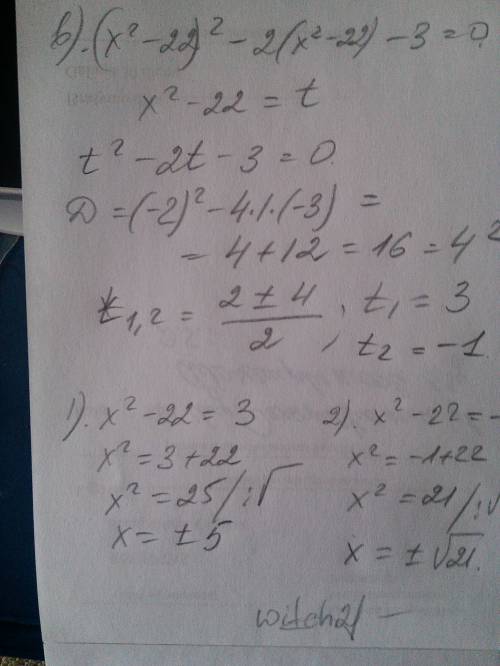 в). (x² - 22)² - 2(x² - 22) - 3 = 0
x² - 22 = t
t² - 2t - 3 = 0.
D = (-2)² - 4·1·(-3) =
= 4 + 12 = 16 = 4²
t₁,₂ = (2 ± 4)/2, t₁ = 3
, t₂ = -1.
1). x² - 22 = 3
x² = 3 + 22
x² = 25 /:√
x = ± 5
2). x² - 22 = -
x² = -1 + 22
x² = 21 /:√
x = ± √21.
witch21